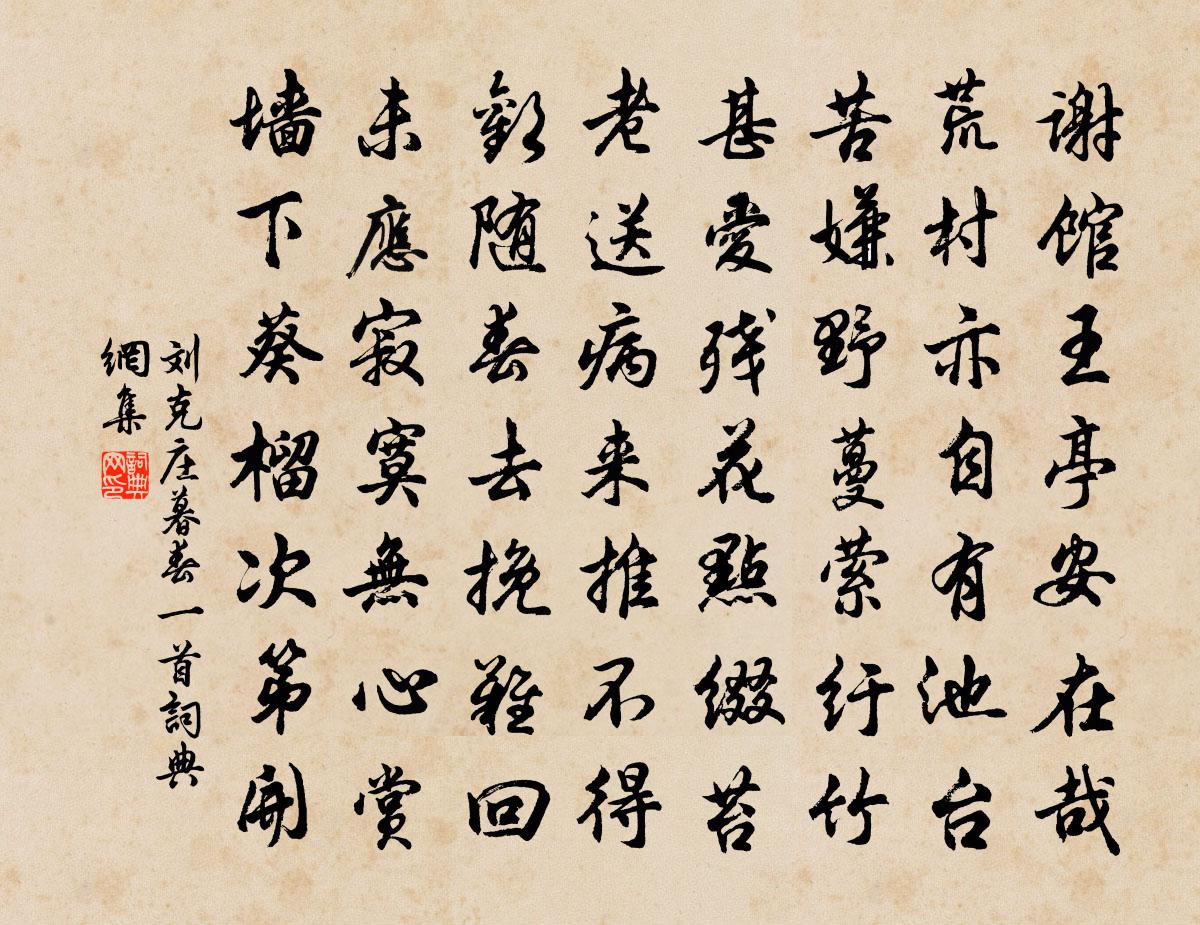 谢馆王亭安在哉
荒村亦自有池台
苦嫌野蔓萦纡竹
甚愛残花點缀苔
老送病来推不得
歡随春去挽難回
未應寂寞無心赏
墙下葵榴次第開
刘克庄暮春一首詞典
網集
詞典
网印